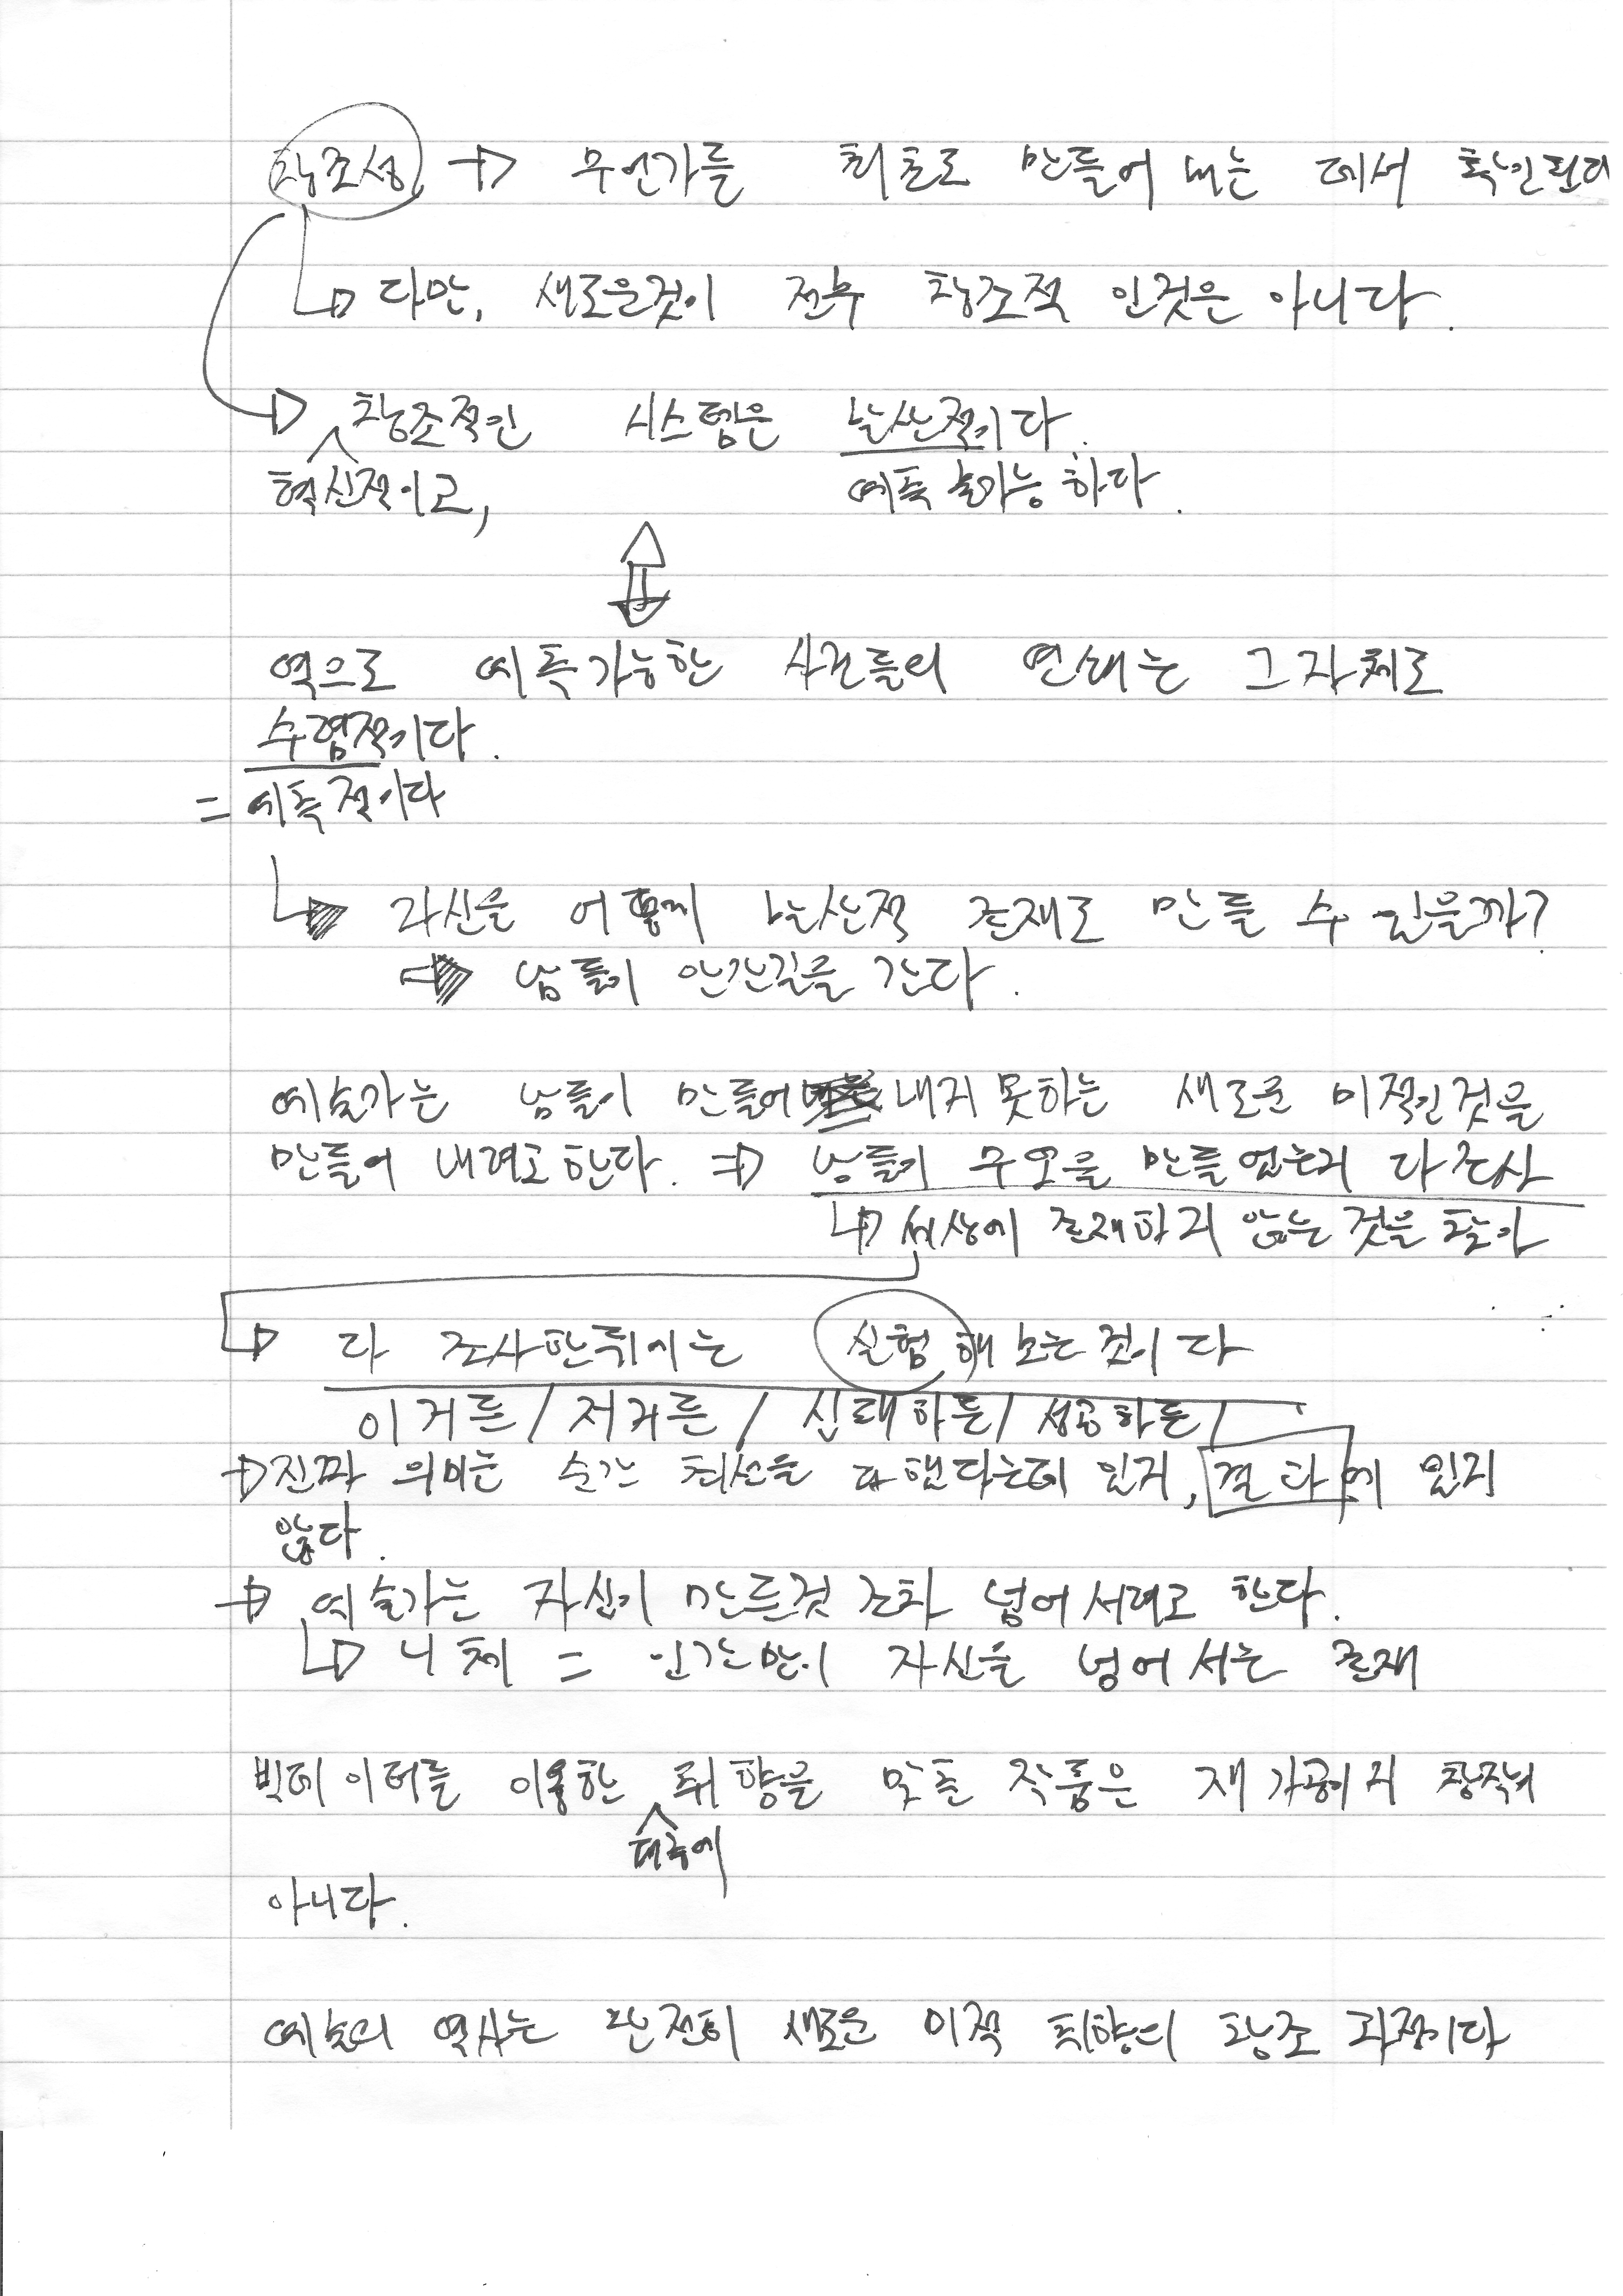 창조성 → 무언가를 최초로 만들어 내는 데서 확인된다
↳ 다만, 새로운것이 전부 창조적 인것은 아니다.
→ 창조적인 시스템은 발산적이다.
혁신적이고, 예측 불가능 하다.
역으로 예측가능한 사건들의 연쇄는 그 자체로
수렴적이다.
= 예측적이다
↳ 자신을 어떻게 발산적 존재로 만들 수 있을까?
⇒ 남들이 안간길을 간다.
예술가는 남들이 만들어 내지 못하는 새로운 미적인것을
만들어 내려고 한다. ⇒ 남들이 무엇을 만들었는지 다 조사
↳ 세상에 존재하지 않는 것을 찾아
↳ 다 조사한뒤에는 실험해 보는것이다
이거든/저거든/실패하든/성공하든/
→ 진짜 의미는 순간 최선을 다했다는데 있지, 결과에 있지
않다.
→ 예술가는 자신이 만든것 조차 넘어서려고 한다.
↳ 니체 = 인간만이 자신을 넘어서는 존재
빅데이터를 이용한 취향을 맞춘 작품은 재가공이지 창작이
대중에
아니다.
예술의 역사는 완전히 새로운 미적 취향의 창조 과정이다